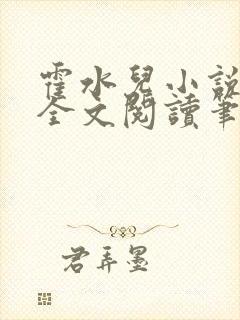 霍水兒小說
全文閱讀筆
君弄墨